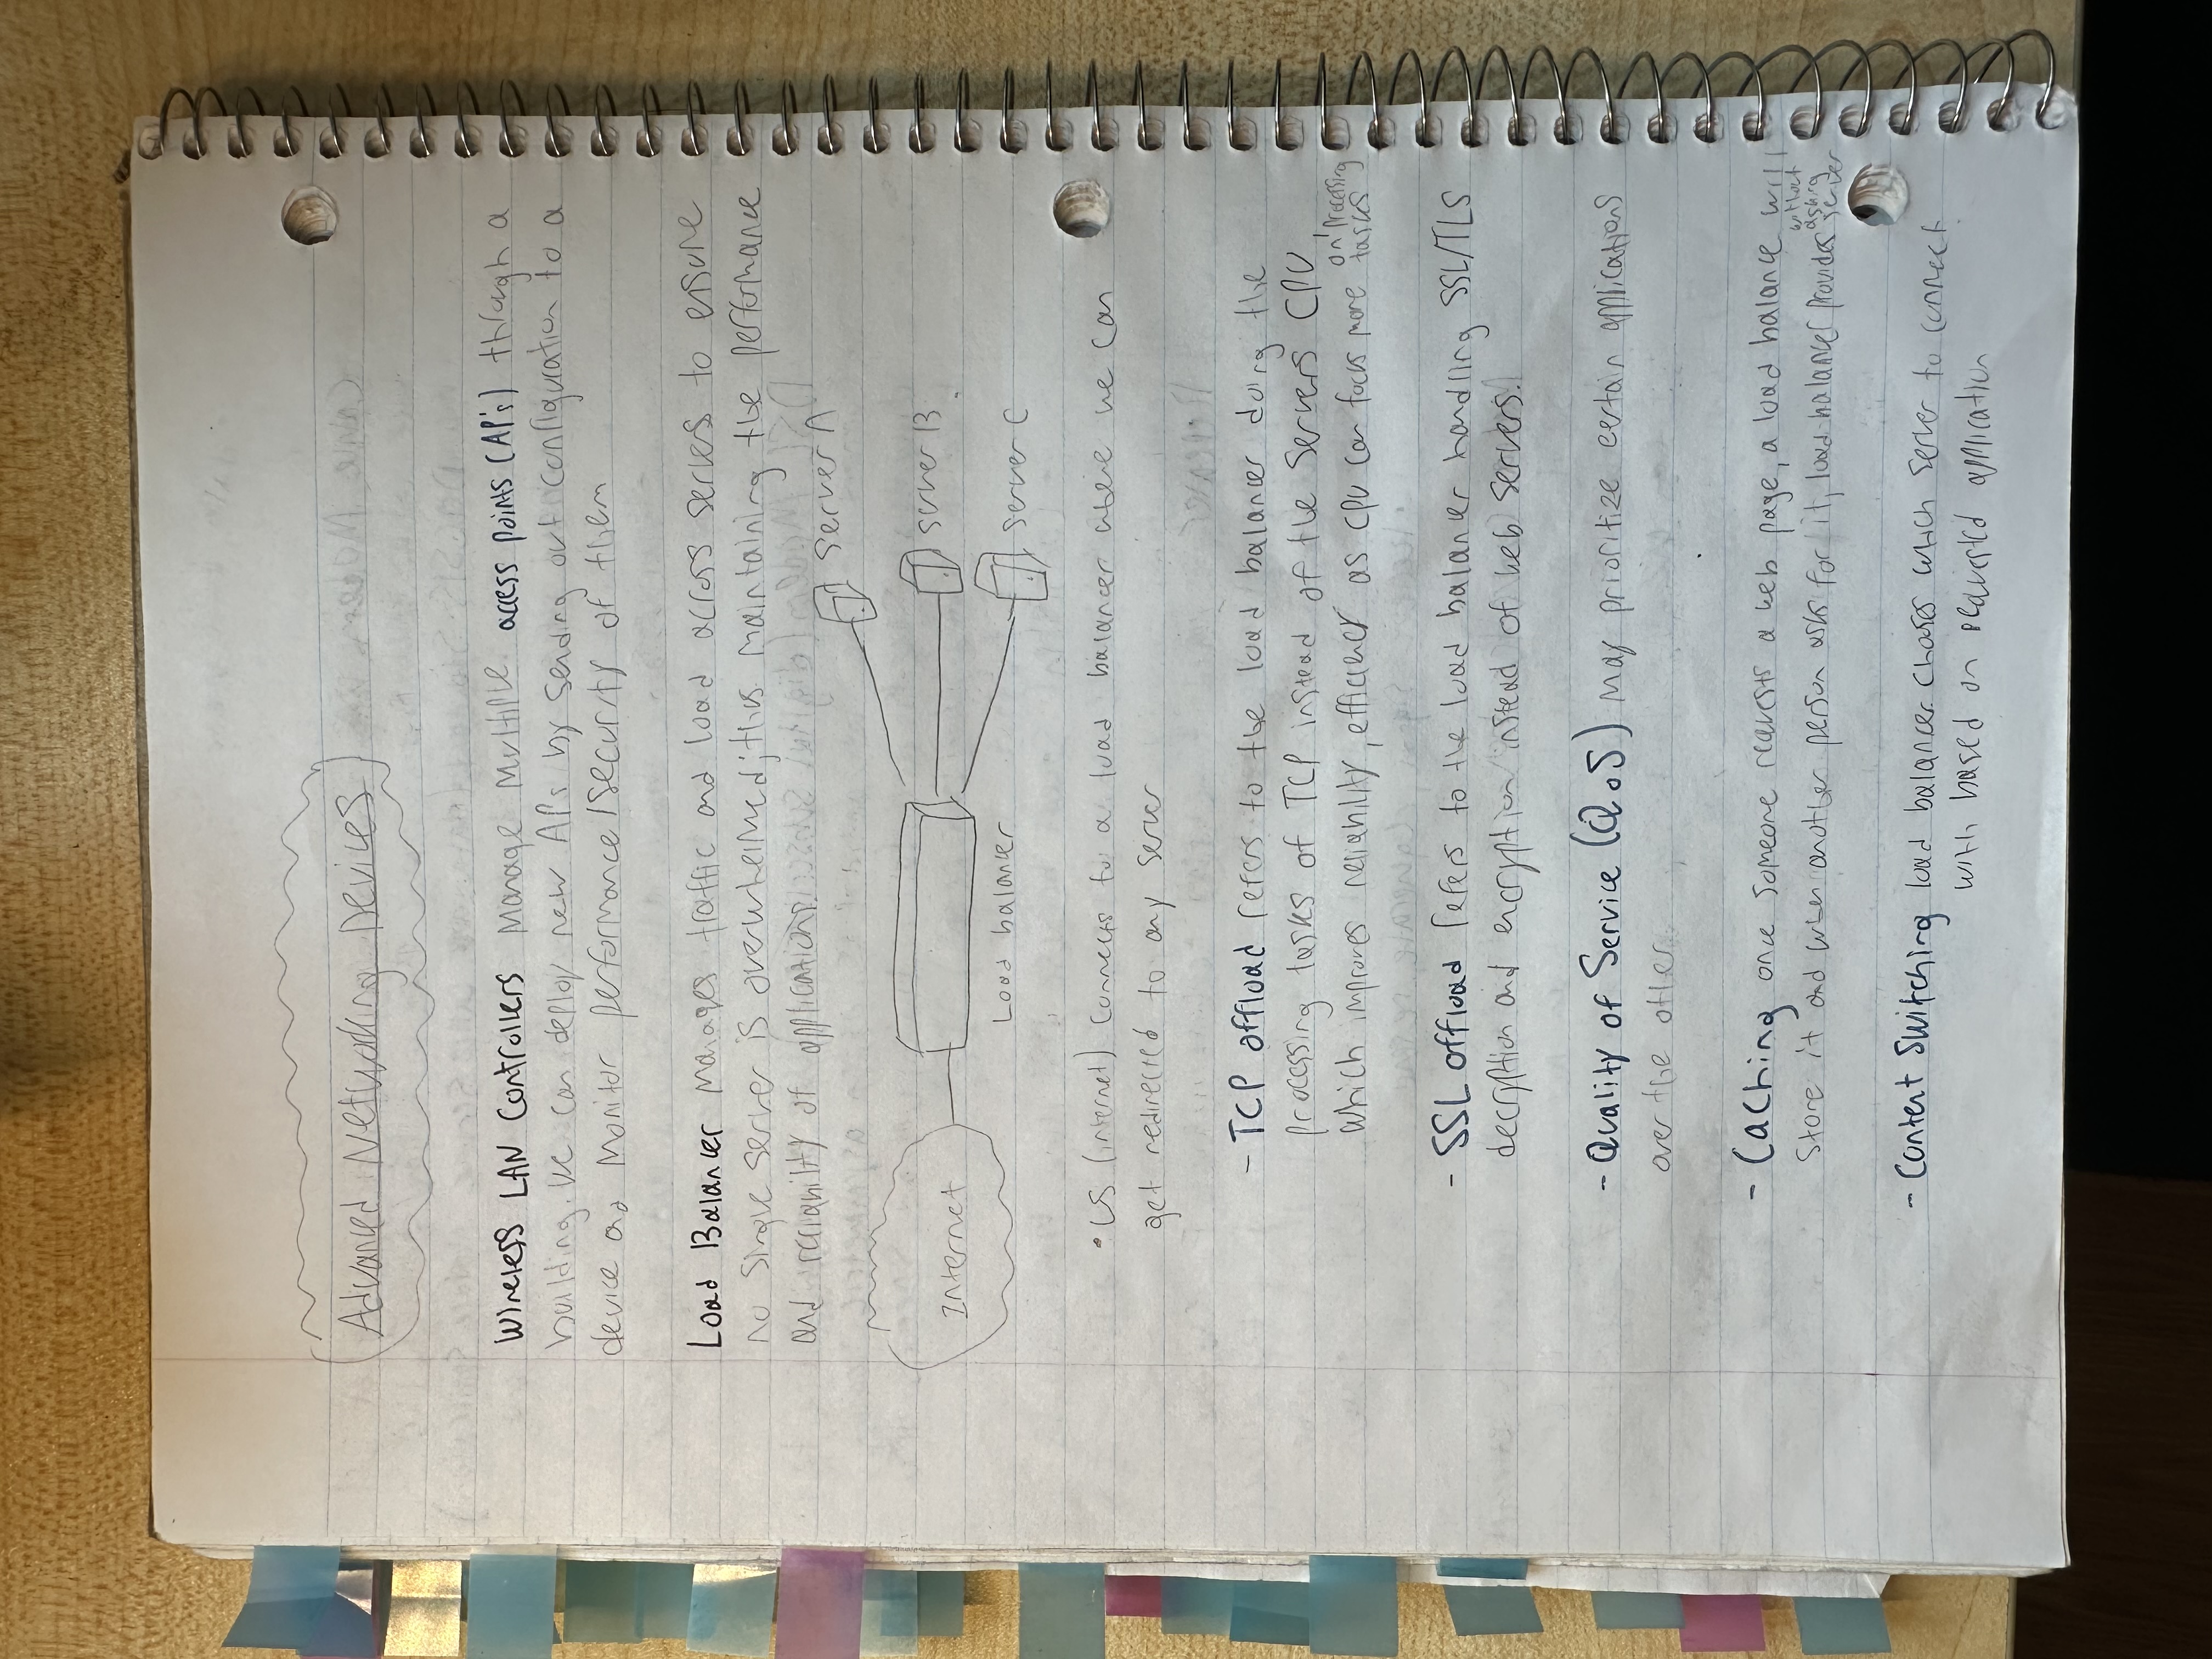 Advanced Networking Devices
Wireless LAN Controllers Manage Multiple access points (AP's) through a
building. We can deploy new APs by sending out configuration to a
device and Monitor performance/security of them
Load Balancer Manages traffic and load across servers to ensure
no single server is overwhelmed; thus maintaining the performance
and reliability of applications.
Server A
Internet
Server B
Load balancer
Server C
• US (internet) connects to a load balancer where we can
get redirected to any server
- TCP offload refers to the load balancer doing the
processing tasks of TCP instead of the servers CPU,
which improves reliability, efficiency as CPU can focus more on processing tasks
- SSL offload refers to the load balancer handling SSL/TLS
decryption and encryption instead of web servers.
- Quality of Service (QoS) may prioritize certain applications
over the other.
- Caching once someone requests a web page, a load balance will
store it and when another person asks for it, load balancer provides without asking server
- Content Switching load balancer choses which server to connect
with based on requested application